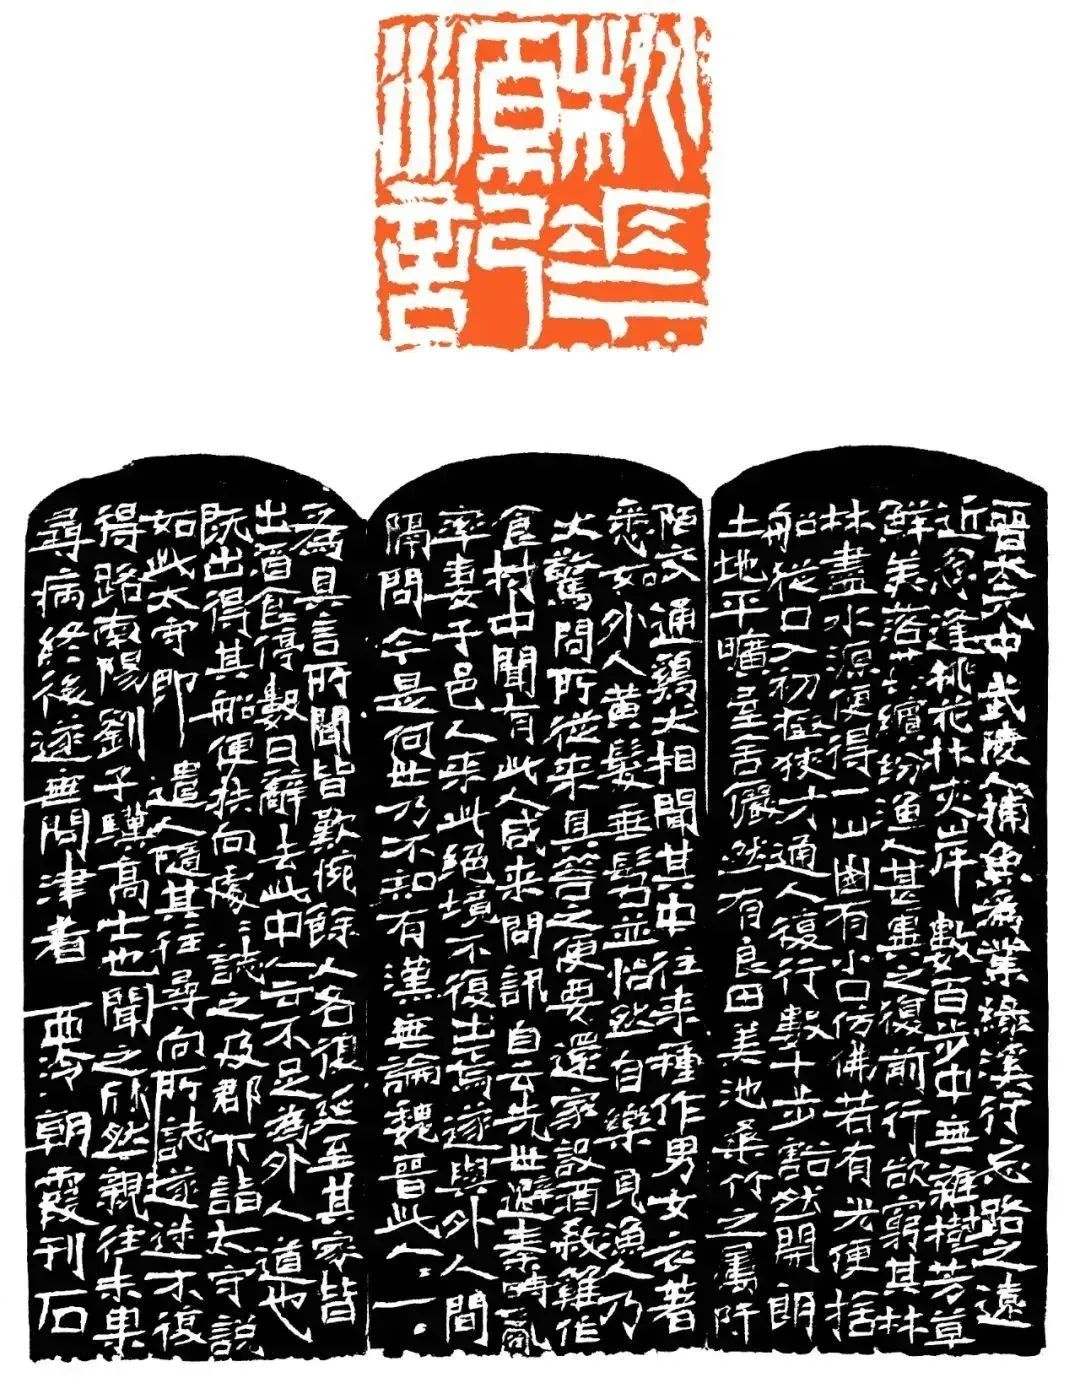 桃華源記
晉太元中武陵人捕魚為業緣溪行忘路之遠
近忽逢桃花林夾岸數百步中無雜樹芳草
鮮美落英繽紛漁人甚異之復前行欲窮其林
林盡水源便得一山有小口仿佛若有光便捨
船從口入初極狹才通人復行數十步豁然開朗
土地平曠屋舍儼然有良田美池桑竹之屬阡
陌交通鷄犬相聞其中往来種作男女衣著
悉如外人黃髮垂髫並怡然自樂見漁人乃
大驚問所從来具答之便要還家設酒殺雞作
食村中聞有此人咸来問訊自云先世避秦時亂
率妻子邑人来此絕境不復出焉遂與外人間
隔問今是何世乃不知有漢無論魏晉此人:一:
為具言所聞皆歎惋餘人各復延至其家皆
出酒食停數日辭去此中人云不足為外人道也
既出得其船便扶向處:誌之及郡下詣太守説
如此太守即遣人隨其往尋向所誌遂迷不復
得路南陽劉子驥高士也聞之欣然親往未果
尋病終後遂無問津者 西泠朝霞刊石